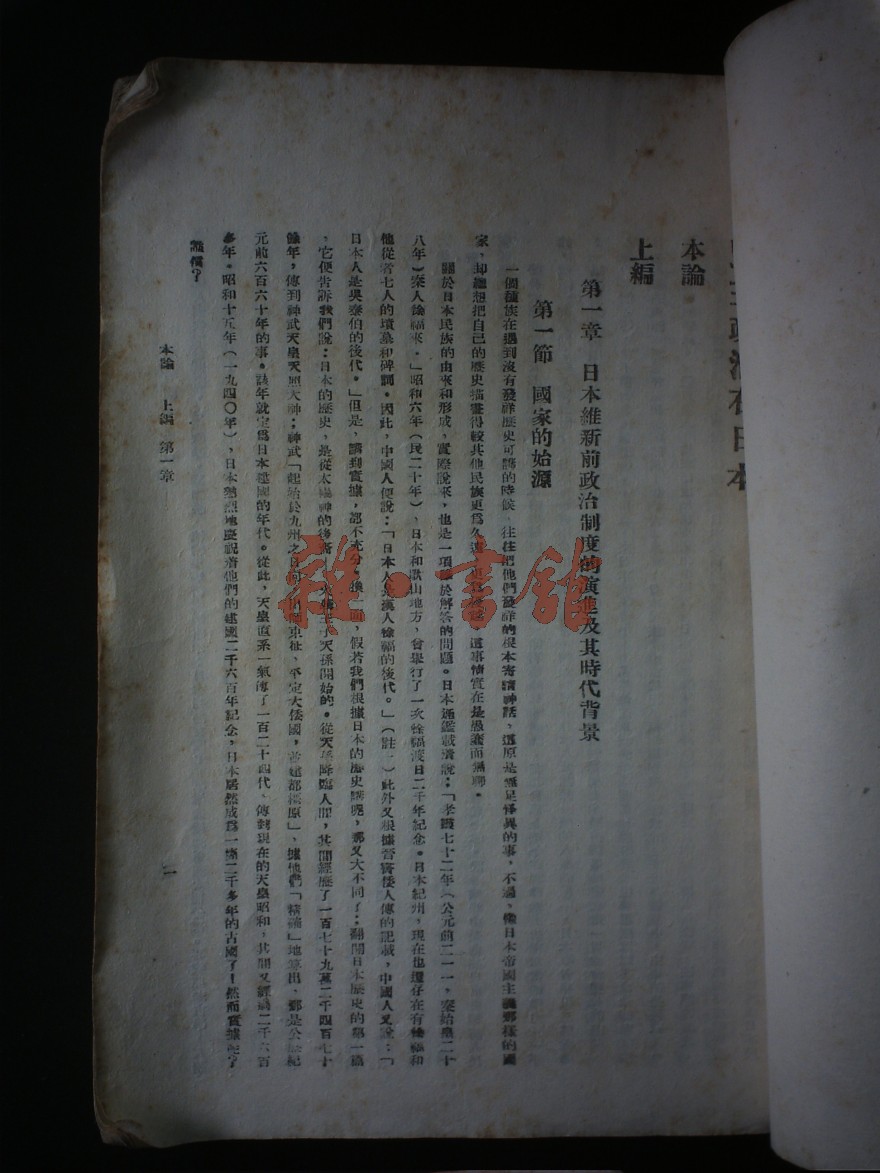 民主政治在日本
本論
上編
第一章　日本維新前政治制度的演進及其時代背景
第一節　國家的始源
一個種族在遇到沒有發祥歷史可講的時候，往往把他們發祥的根本寄講神話，這原是無足怪異的事，不過，像日本帝國主義那樣的國
家，却總想把自己的歷史描畫得較其他民族更爲久遠，更爲 這事情實在是愚蠢而無聊。
關於日本民族的由來和形成，實際說來，也是一項 於解答的問題。日本通鑑載着說：「孝靈七十二年（公元前二一一，秦始皇二十
八年）秦人徐福來。」昭和六年（民二十年），日本和歌山地方，曾舉行了一次徐福渡日二千年紀念。日本紀州，現在也還存在有徐福和
他從者七人的墳墓和碑銘。因此，中國人便說：「日本人是漢人徐福的後代。」（註一）此外又根據晉書倭人傳的記載，中國人又說：「
日本人是吳泰伯的後代。」但是，講到實據，都不充分。換 面，假若我們根據日本的歷史講呢，那又大不同了：翻開日本歷史的第一篇
，它便告訴我們說：日本的歷史，是從太陽神的後裔 天孫開始的。從天孫降臨人間，其間經歷了一百七十九萬二千四百七十
餘年，傳到神武天皇天照大神；神武「起始於九州之日向， 東征，平定大倭國，奠建都橿原」，據他們「精確」地算出，那是公曆紀
元前六百六十年的事。該年就定爲日本建國的年代。從此，天皇直系一氣傳了一百二十四代，傳到現在的天皇昭和，其間又經過二千六百
多年。昭和十五年（一九四〇年），日本熱烈地慶祝着他們的建國二千六百年紀念，日本居然成爲一個二千多年的古國了！然而實據呢？
證據？
本論　上編　第一章
一
雜·書館